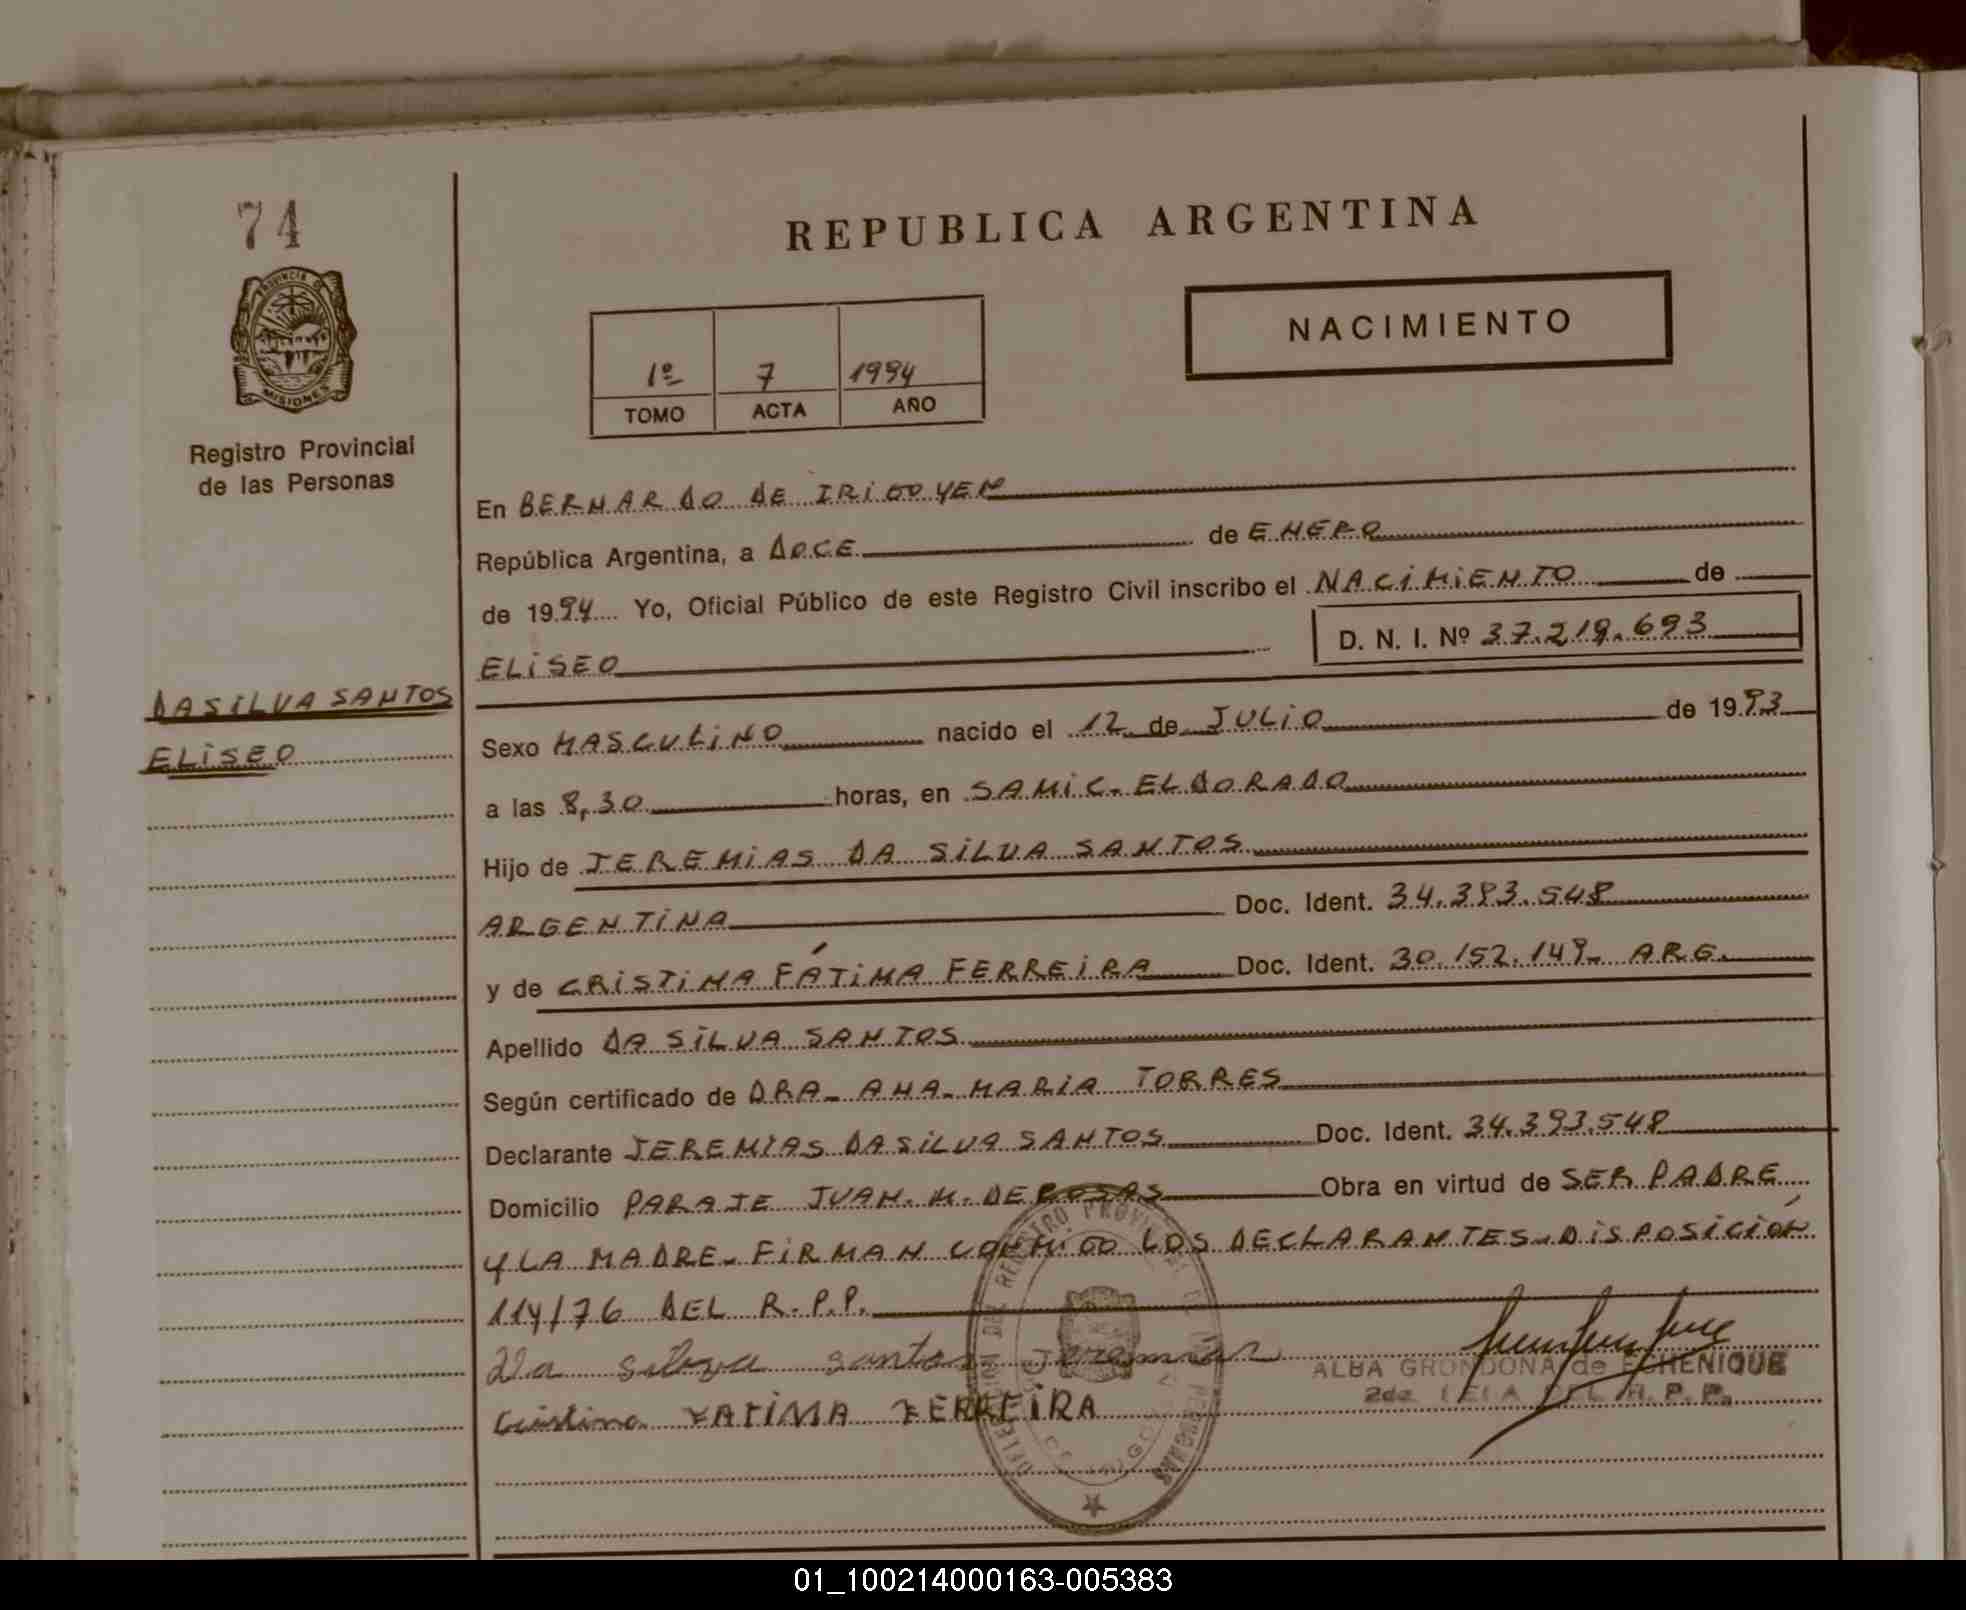 74
REPUBLICA ARGENTINA
PROVINCIA DE
MISIONES
NACIMIENTO
1º 7 1994
TOMO ACTA AÑO
Registro Provincial
de las Personas
En BERNARDO DE IRIGOYEN
República Argentina, a DOCE de ENERO
de 1994 Yo, Oficial Público de este Registro Civil inscribo el NACIMIENTO de
ELISEO D. N. I. Nº 37.219.693
DASILVA SANTOS
ELISEO
Sexo MASCULINO nacido el 12 de JULIO de 1993
a las 8,30 horas, en SAMIC. ELDORADO
Hijo de JEREMIAS DA SILVA SANTOS
ARGENTINA Doc. Ident. 34.393.548
y de CRISTINA FÁTIMA FERREIRA Doc. Ident. 30.152.149- ARG.
Apellido DA SILVA SANTOS
Según certificado de DRA- ANA-MARIA TORRES
Declarante JEREMIAS DASILVA SANTOS Doc. Ident. 34.393.548
Domicilio PARAJE JUAN. M. DE ROSAS Obra en virtud de SER PADRE
Y LA MADRE- FIRMAN CONMIGO LOS DECLARANTES- DISPOSICIÓN
114/76 DEL R.P.P.
Da silva santos Jeremias
ALBA GRONDONA de ECHENIQUE
DEL R.P.P.
Cristina FATIMA FERREIRA
01_100214000163-005383